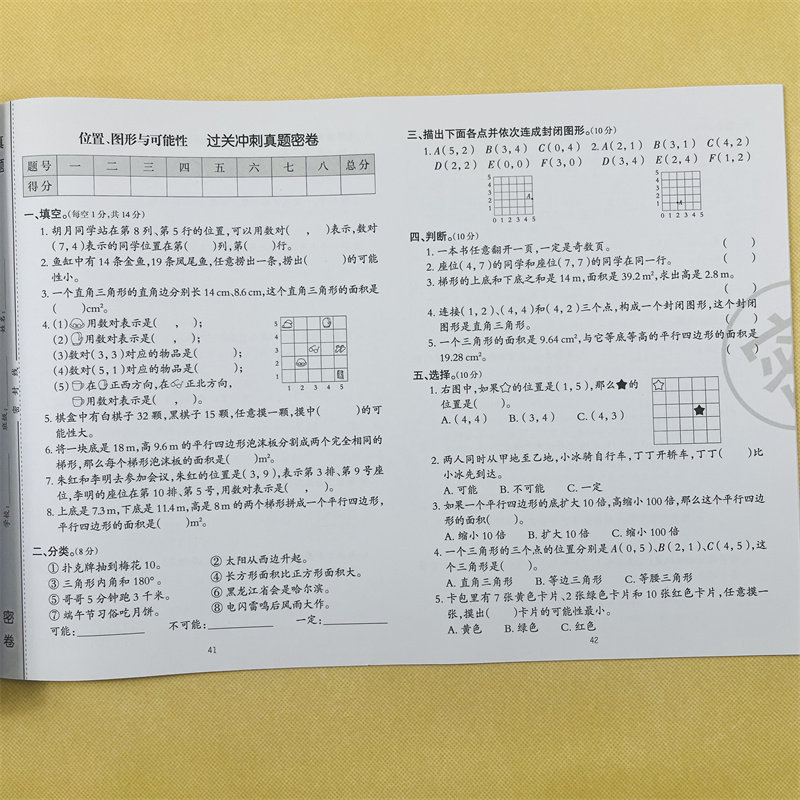 位置、图形与可能性 过关冲刺真题密卷
题号 一 二 三 四 五 六 七 八 总分
得分
一、填空。(每空1分,共14分)
1. 胡月同学站在第8列、第5行的位置,可以用数对( , )表示,数对
(7,4)表示的同学位置在第( )列,第( )行。
2. 鱼缸中有14条金鱼,19条凤尾鱼,任意捞出一条,捞出( )的可能
性小。
3. 一个直角三角形的直角边分别长14 cm、8.6 cm,这个直角三角形的面积是
( )cm²。
4. (1) 用数对表示是( , );
(2) 用数对表示是( , );
(3)数对(3,3)对应的物品是( );
(4)数对(5,1)对应的物品是( );
(5) 在 正西方向,在 正北方向,
用数对表示是( , )。
5
4
3
2
1
1 2 3 4 5
5. 棋盒中有白棋子32颗,黑棋子15颗,任意摸一颗,摸中( )的可
能性大。
6. 将一块底是18 m,高9.6 m的平行四边形泡沫板分割成两个完全相同的
梯形,那么每个梯形泡沫板的面积是( )m²。
7. 朱红和李明去参加会议,朱红的位置是(3,9),表示第3排、第9号座
位,李明的座位在第10排、第5号,用数对表示是( , )。
8. 上底是7.3 m,下底是11.4 m,高是8 m的两个梯形拼成一个平行四边形,
平行四边形的面积是( )m²。
二、分类。(8分)
① 扑克牌抽到梅花10。 ② 太阳从西边升起。
③ 三角形内角和180°。 ④ 长方形面积比正方形面积大。
⑤ 哥哥5分钟跑3千米。 ⑥ 黑龙江省会是哈尔滨。
⑦ 端午节习俗吃月饼。 ⑧ 电闪雷鸣后风雨大作。
可能: 不可能: 一定:
41
三、描出下面各点并依次连成封闭图形。(10分)
1. A(5,2) B(3,4) C(0,4) 2. A(2,1) B(3,1) C(4,2)
D(2,2) E(0,0) F(3,0) D(3,4) E(2,4) F(1,2)
5
4
3
2
1
A
0 1 2 3 4 5
5
4
3
2
1
A
0 1 2 3 4 5
四、判断。(10分)
1. 一本书任意翻开一页,一定是奇数页。 ( )
2. 座位(4,7)的同学和座位(7,7)的同学在同一行。 ( )
3. 梯形的上底和下底之和是14 m,面积是39.2 m²,求出高是2.8 m。
( )
4. 连接(1,2)、(4,4)和(4,2)三个点,构成一个封闭图形,这个封闭
图形是直角三角形。 ( )
5. 一个三角形的面积是9.64 cm²,与它等底等高的平行四边形的面积是
19.28 cm²。 ( )
五、选择。(10分)
1. 右图中,如果☆的位置是(1,5),那么★的
位置是( )。
A. (4,4) B. (3,4) C. (4,3)
2. 两人同时从甲地至乙地,小冰骑自行车,丁丁开轿车,丁丁( )比
小冰先到达。
A. 可能 B. 不可能 C. 一定
3. 如果一个平行四边形的底扩大10倍,高缩小100倍,那么这个平行四边
形的面积( )。
A. 缩小10倍 B. 扩大10倍 C. 缩小100倍
4. 一个三角形的三个点的位置分别是A(0,5)、B(2,1)、C(4,5),这
个三角形是( )。
A. 直角三角形 B. 等边三角形 C. 等腰三角形
5. 卡包里有7张黄色卡片、2张绿色卡片和10张红色卡片,任意摸一
张,摸出( )卡片的可能性最小。
A. 黄色 B. 绿色 C. 红色
42
姓名:
班级:
学校:
密 封 线
密卷